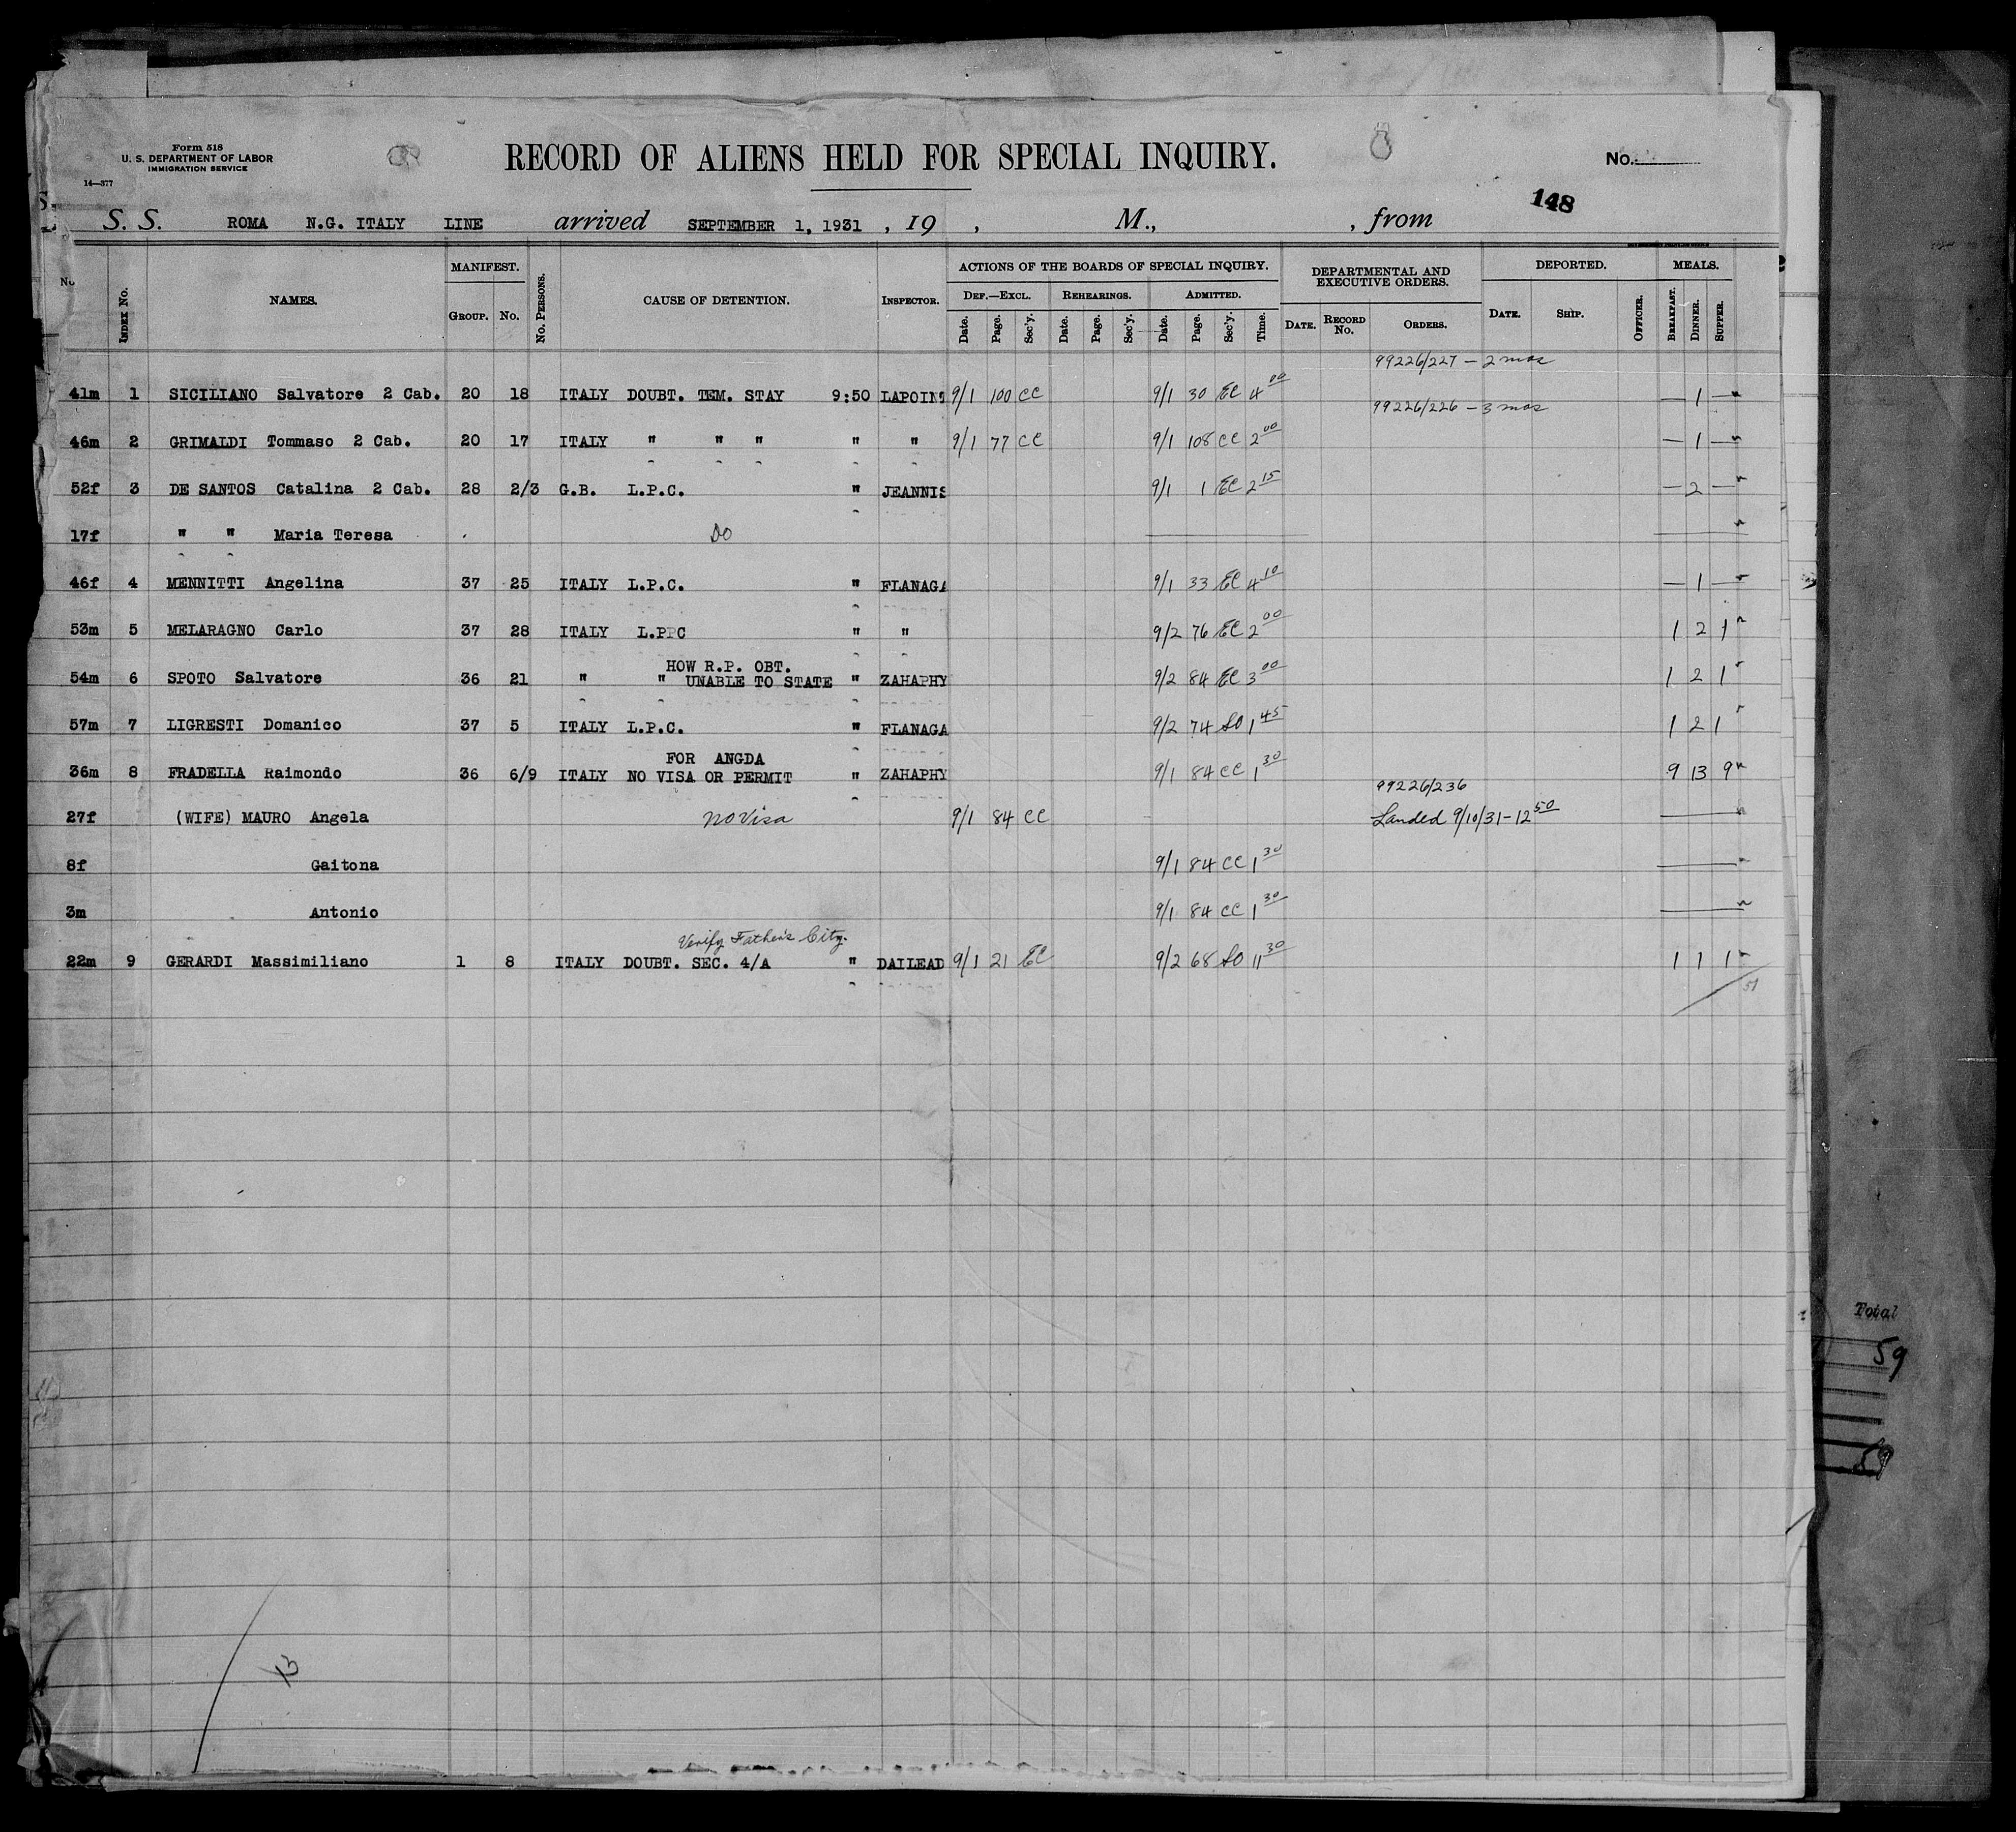 Form 518
U. S. DEPARTMENT OF LABOR
IMMIGRATION SERVICE
14—377
RECORD OF ALIENS HELD FOR SPECIAL INQUIRY.
No.
148
S. S. ROMA N.G. ITALY LINE arrived SEPTEMBER 1, 1931 , 19 , M., , from
No
INDEX NO.
NAMES.
MANIFEST.
GROUP. NO.
NO. PERSONS.
CAUSE OF DETENTION.
INSPECTOR.
ACTIONS OF THE BOARDS OF SPECIAL INQUIRY.
DEF.—EXCL. REHEARINGS. ADMITTED.
Date. Page. Sec'y. Date. Page. Sec'y. Date. Page. Sec'y. Time.
DEPARTMENTAL AND EXECUTIVE ORDERS.
DATE. RECORD NO. ORDERS.
DEPORTED.
DATE. SHIP. OFFICER.
MEALS.
BREAKFAST. DINNER. SUPPER.
99226/227 — 2 mos
41m 1 SICILIANO Salvatore 2 Cab. 20 18 ITALY DOUBT. TEM. STAY 9:50 LAPOINT 9/1 100 CC 9/1 30 EC 4 00 — 1 —
99226/226 — 3 mos
46m 2 GRIMALDI Tommaso 2 Cab. 20 17 ITALY " " " " " 9/1 77 CC 9/1 108 CC 2 00 — 1 —
52f 3 DE SANTOS Catalina 2 Cab. 28 2/3 G.B. L.P.C. " JEANNIS 9/1 1 EC 2 15 — 2 —
17f " " Maria Teresa Do
46f 4 MENNITTI Angelina 37 25 ITALY L.P.C. " FLANAGA 9/1 33 EC 4 10 — 1 —
53m 5 MELARAGNO Carlo 37 28 ITALY L.PPC " " 9/2 76 EC 2 00 1 2 1
HOW R.P. OBT.
54m 6 SPOTO Salvatore 36 21 " " UNABLE TO STATE " ZAHAPHY 9/2 84 EC 3 00 1 2 1
57m 7 LIGRESTI Domanico 37 5 ITALY L.P.C. " FLANAGA 9/2 74 SO 1 45 1 2 1
FOR ANGDA
36m 8 FRADELLA Raimondo 36 6/9 ITALY NO VISA OR PERMIT " ZAHAPHY 9/1 84 CC 1 30 9 13 9
99226/236
27f (WIFE) MAURO Angela no Visa 9/1 84 CC Landed 9/10/31 - 12 50
8f Gaitona 9/1 84 CC 1 30
3m Antonio 9/1 84 CC 1 30
Verify Father's City.
22m 9 GERARDI Massimiliano 1 8 ITALY DOUBT. SEC. 4/A " DAILEAD 9/1 21 EC 9/2 68 SO 11 30 1 1 1
51
Total
59
59
13